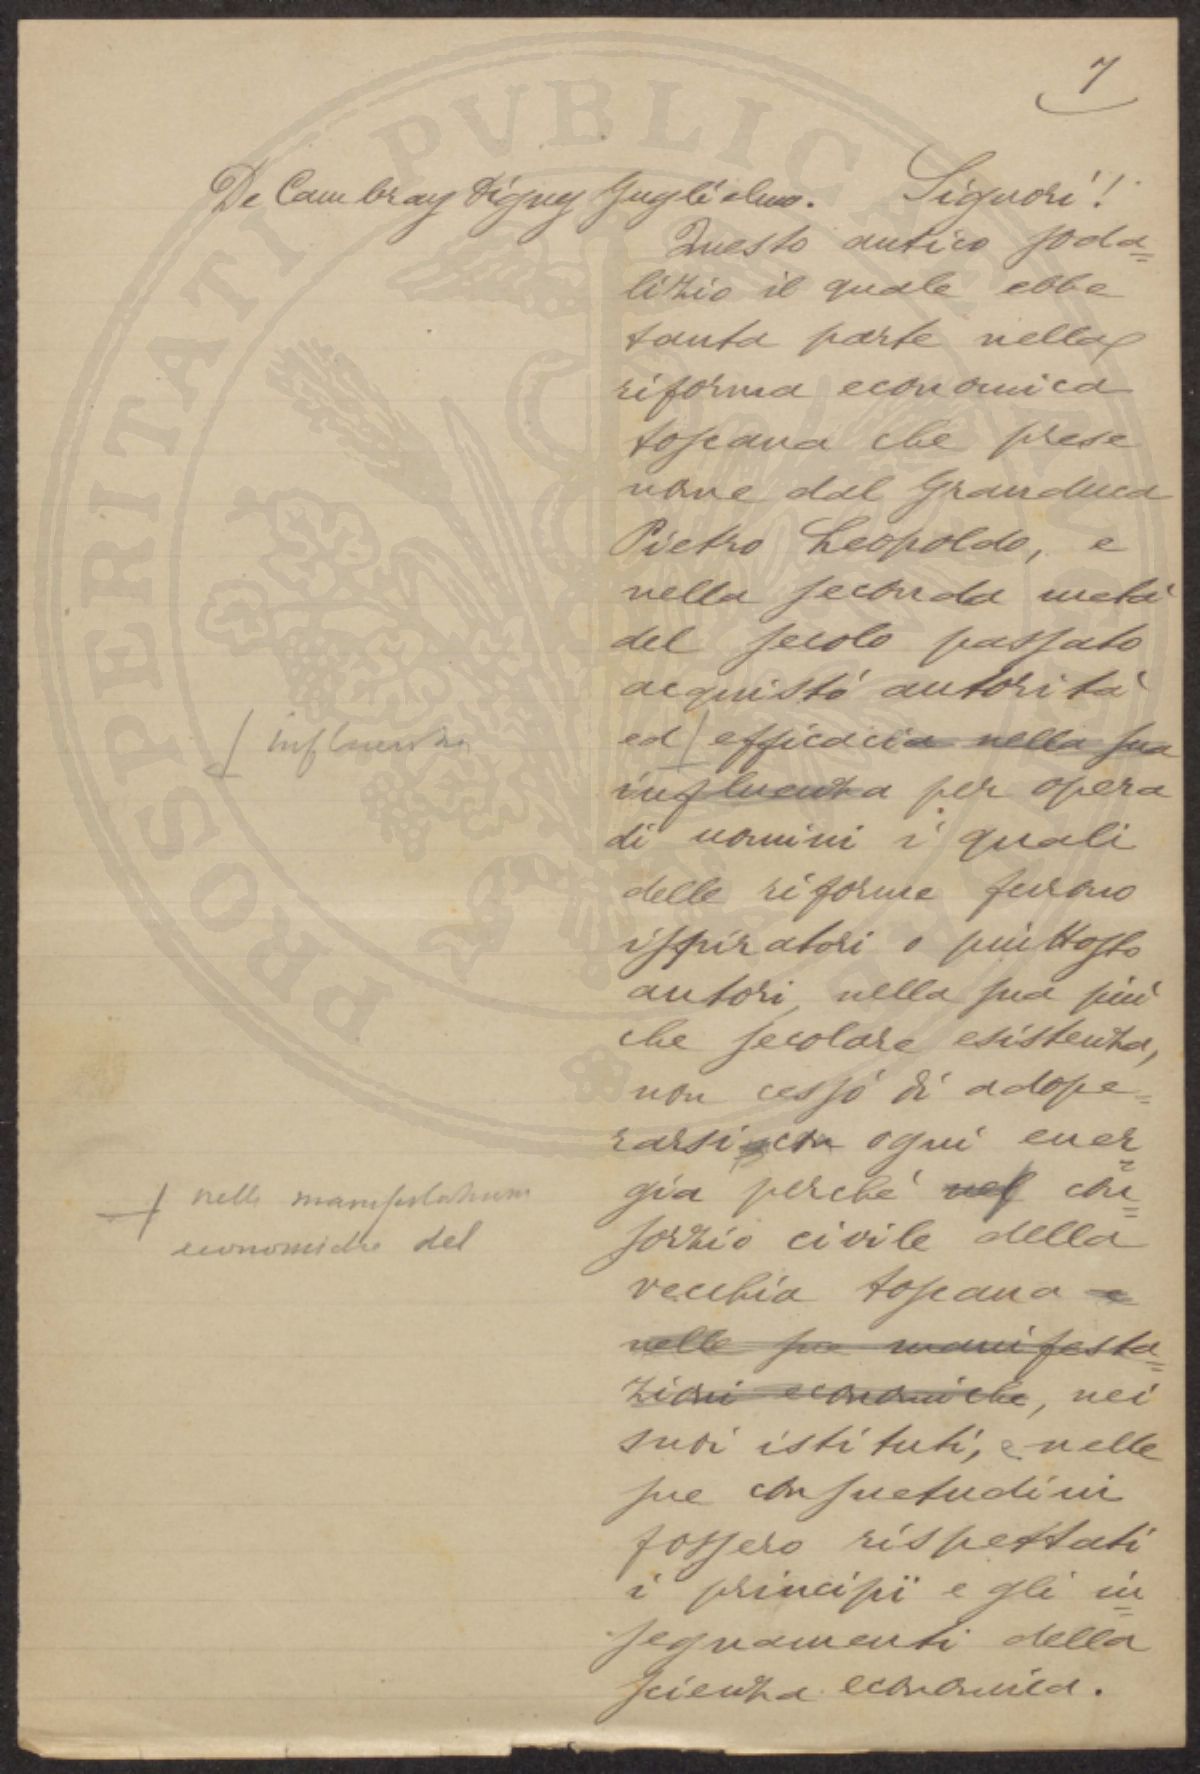 7
De Cambray Digny Guglielmo. Signori!
Questo antico soda=
lizio il quale ebbe
tanta parte nella
riforma economica
toscana che prese
nome dal Granduca
Pietro Leopoldo, e
nella seconda metà
del secolo passato
acquistó autoritá
ed efficacia nella sua
influenza
influenza per opera
di uomini i quali
delle riforme furono
ispiratori o piuttosto
autori, nella sua piú
che secolare esistenza,
non cessó di adope=
rarsi con ogni ener=
gia perché nel con=
nelle manifestazioni
economiche del
sorzio civile della
vecchia toscana e
nelle sue manifesta=
zioni economiche, nei
suoi istituti, e nelle
sue consuetudini
fossero rispettati
i principï e gli in=
segnamenti della
scienza economica.
PROSPERITATI PVBLICAE AVGENDAE